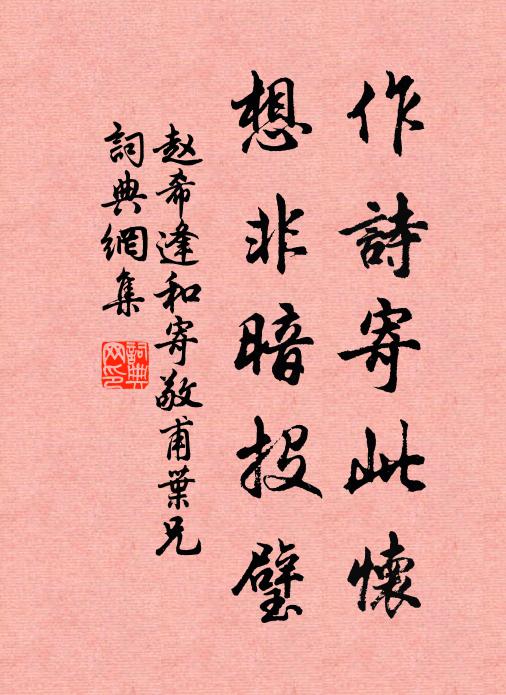 作詩寄此懷
想非暗投璧
赵希逢和寄敬甫葉兄
詞典網集
詞典
网印